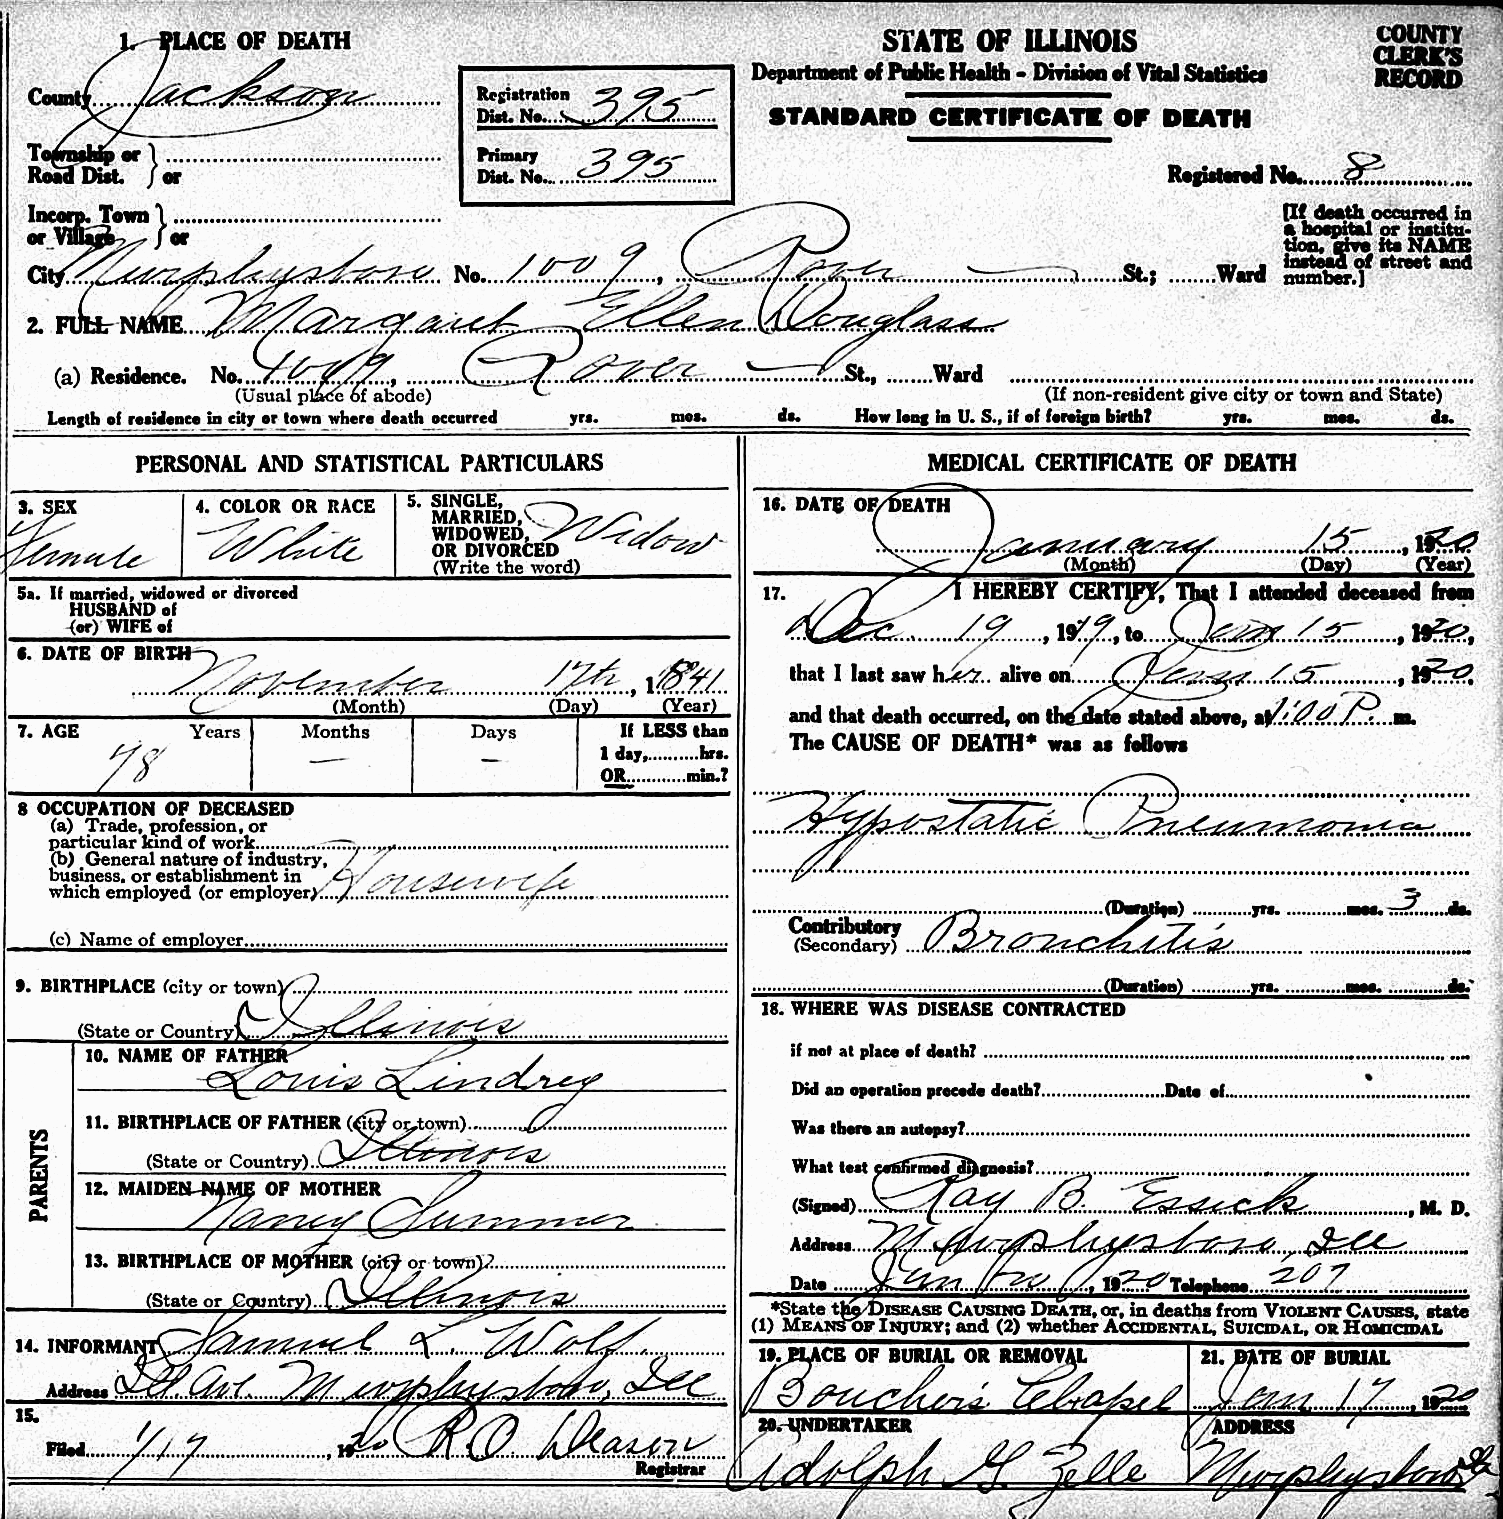 1. PLACE OF DEATH
County Jackson
Township or Road Dist. } or
Incorp. Town or Village } or
Registration Dist. No. 395
Primary Dist. No. 395
STATE OF ILLINOIS
Department of Public Health - Division of Vital Statistics
STANDARD CERTIFICATE OF DEATH
COUNTY
CLERK'S
RECORD
Registered No. 8
[If death occurred in
a hospital or institu-
tion, give its NAME
instead of street and
number.]
City Murphysboro No. 1009, Rover St.; Ward
2. FULL NAME Margaret Ellen Douglass
(a) Residence. No. 1009, Rover St., Ward
(Usual place of abode) (If non-resident give city or town and State)
Length of residence in city or town where death occurred yrs. mos. ds. How long in U. S., if of foreign birth? yrs. mos. ds.
PERSONAL AND STATISTICAL PARTICULARS
3. SEX
Female
4. COLOR OR RACE
White
5. SINGLE,
MARRIED,
WIDOWED,
OR DIVORCED
(Write the word)
Widow
5a. If married, widowed or divorced
HUSBAND of
(or) WIFE of
6. DATE OF BIRTH
November 17th, 1841
(Month) (Day) (Year)
7. AGE Years Months Days If LESS than
78 — — 1 day, hrs.
OR min.?
8 OCCUPATION OF DECEASED
(a) Trade, profession, or
particular kind of work
(b) General nature of industry,
business, or establishment in
which employed (or employer) Housewife
(c) Name of employer
9. BIRTHPLACE (city or town)
(State or Country) Illinois
PARENTS
10. NAME OF FATHER
Louis Lindrey
11. BIRTHPLACE OF FATHER (city or town)
(State or Country) Illinois
12. MAIDEN NAME OF MOTHER
Nancy Summer
13. BIRTHPLACE OF MOTHER (city or town)
(State or Country) Illinois
14. INFORMANT Samuel L. Wolf.
Address Ill. Ave. Murphysboro, Ill
15.
Filed 1/17, 1920 R.O. Deason
Registrar
MEDICAL CERTIFICATE OF DEATH
16. DATE OF DEATH
January 15, 1920
(Month) (Day) (Year)
17. I HEREBY CERTIFY, That I attended deceased from
Dec. 19, 1919, to Jan 15, 1920,
that I last saw her alive on Jan 15, 1920
and that death occurred, on the date stated above, at 1:00 P. m.
The CAUSE OF DEATH* was as follows
Hypostatic Pneumonia
(Duration) yrs. mos. 3 ds.
Contributory
(Secondary) Bronchitis
(Duration) yrs. mos. ds.
18. WHERE WAS DISEASE CONTRACTED
if not at place of death?
Did an operation precede death? Date of
Was there an autopsy?
What test confirmed diagnosis?
(Signed) Ray B. Essick, M. D.
Address Murphysboro Ill
Date Jan, 1920 Telephone 207
*State the DISEASE CAUSING DEATH, or, in deaths from VIOLENT CAUSES, state
(1) MEANS OF INJURY; and (2) whether ACCIDENTAL, SUICIDAL, OR HOMICIDAL
19. PLACE OF BURIAL OR REMOVAL
Boucher's Chapel
21. DATE OF BURIAL
Jan 17, 1920
20. UNDERTAKER
Adolph G. Zelle
ADDRESS
Murphysboro Ill